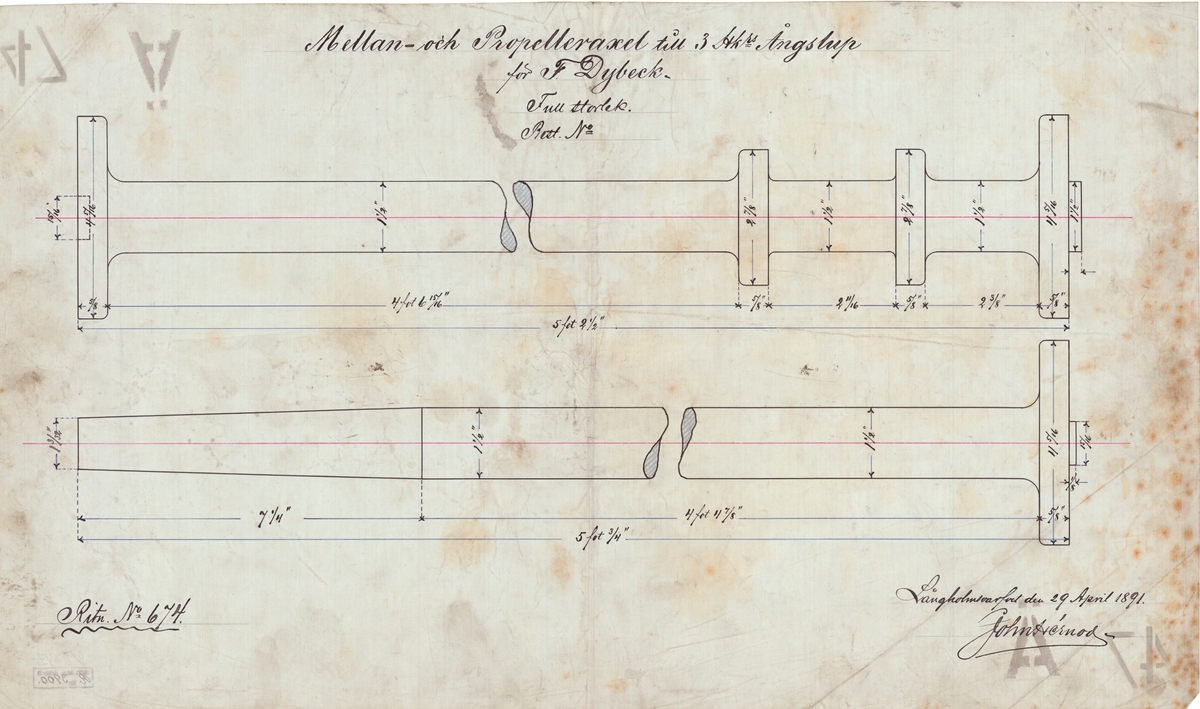 Mellan- och Propelleraxel till 3 Hkrs Ångslup
för F Dybeck.
Full storlek.
Rost. No
15/16"
4 5/16
1 1/2"
2 7/8"
1 1/2"
2 7/8"
1 1/2"
4 5/16
1 1/2"
5/8"
4 fot 6 15/16"
5/8"
2 11/16
5/8"
2 3/8"
5/8"
5 fot 2 1/2"
1 1/2"
1 1/2"
4 5/16
1/8"
7 1/4"
4 fot 4 7/8"
5/8"
5 fot 3/4"
Långholmsvarfvet den 29 April 1891.
Ritn. No 674.